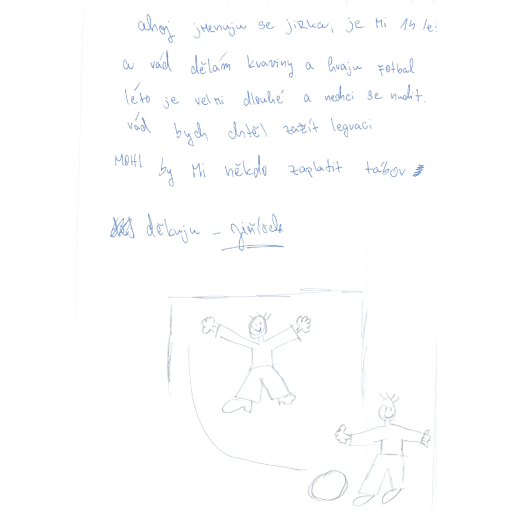 ahoj jmenuju se jirka, je mi 14 le
a rád dělám kraviny a hraju fotbal
léto je velmi dlouhé a nechci se nudit.
rád bych chtěl zažít legraci.
MOHl by Mi někdo zaplatit tábor
děkuju - jiříček